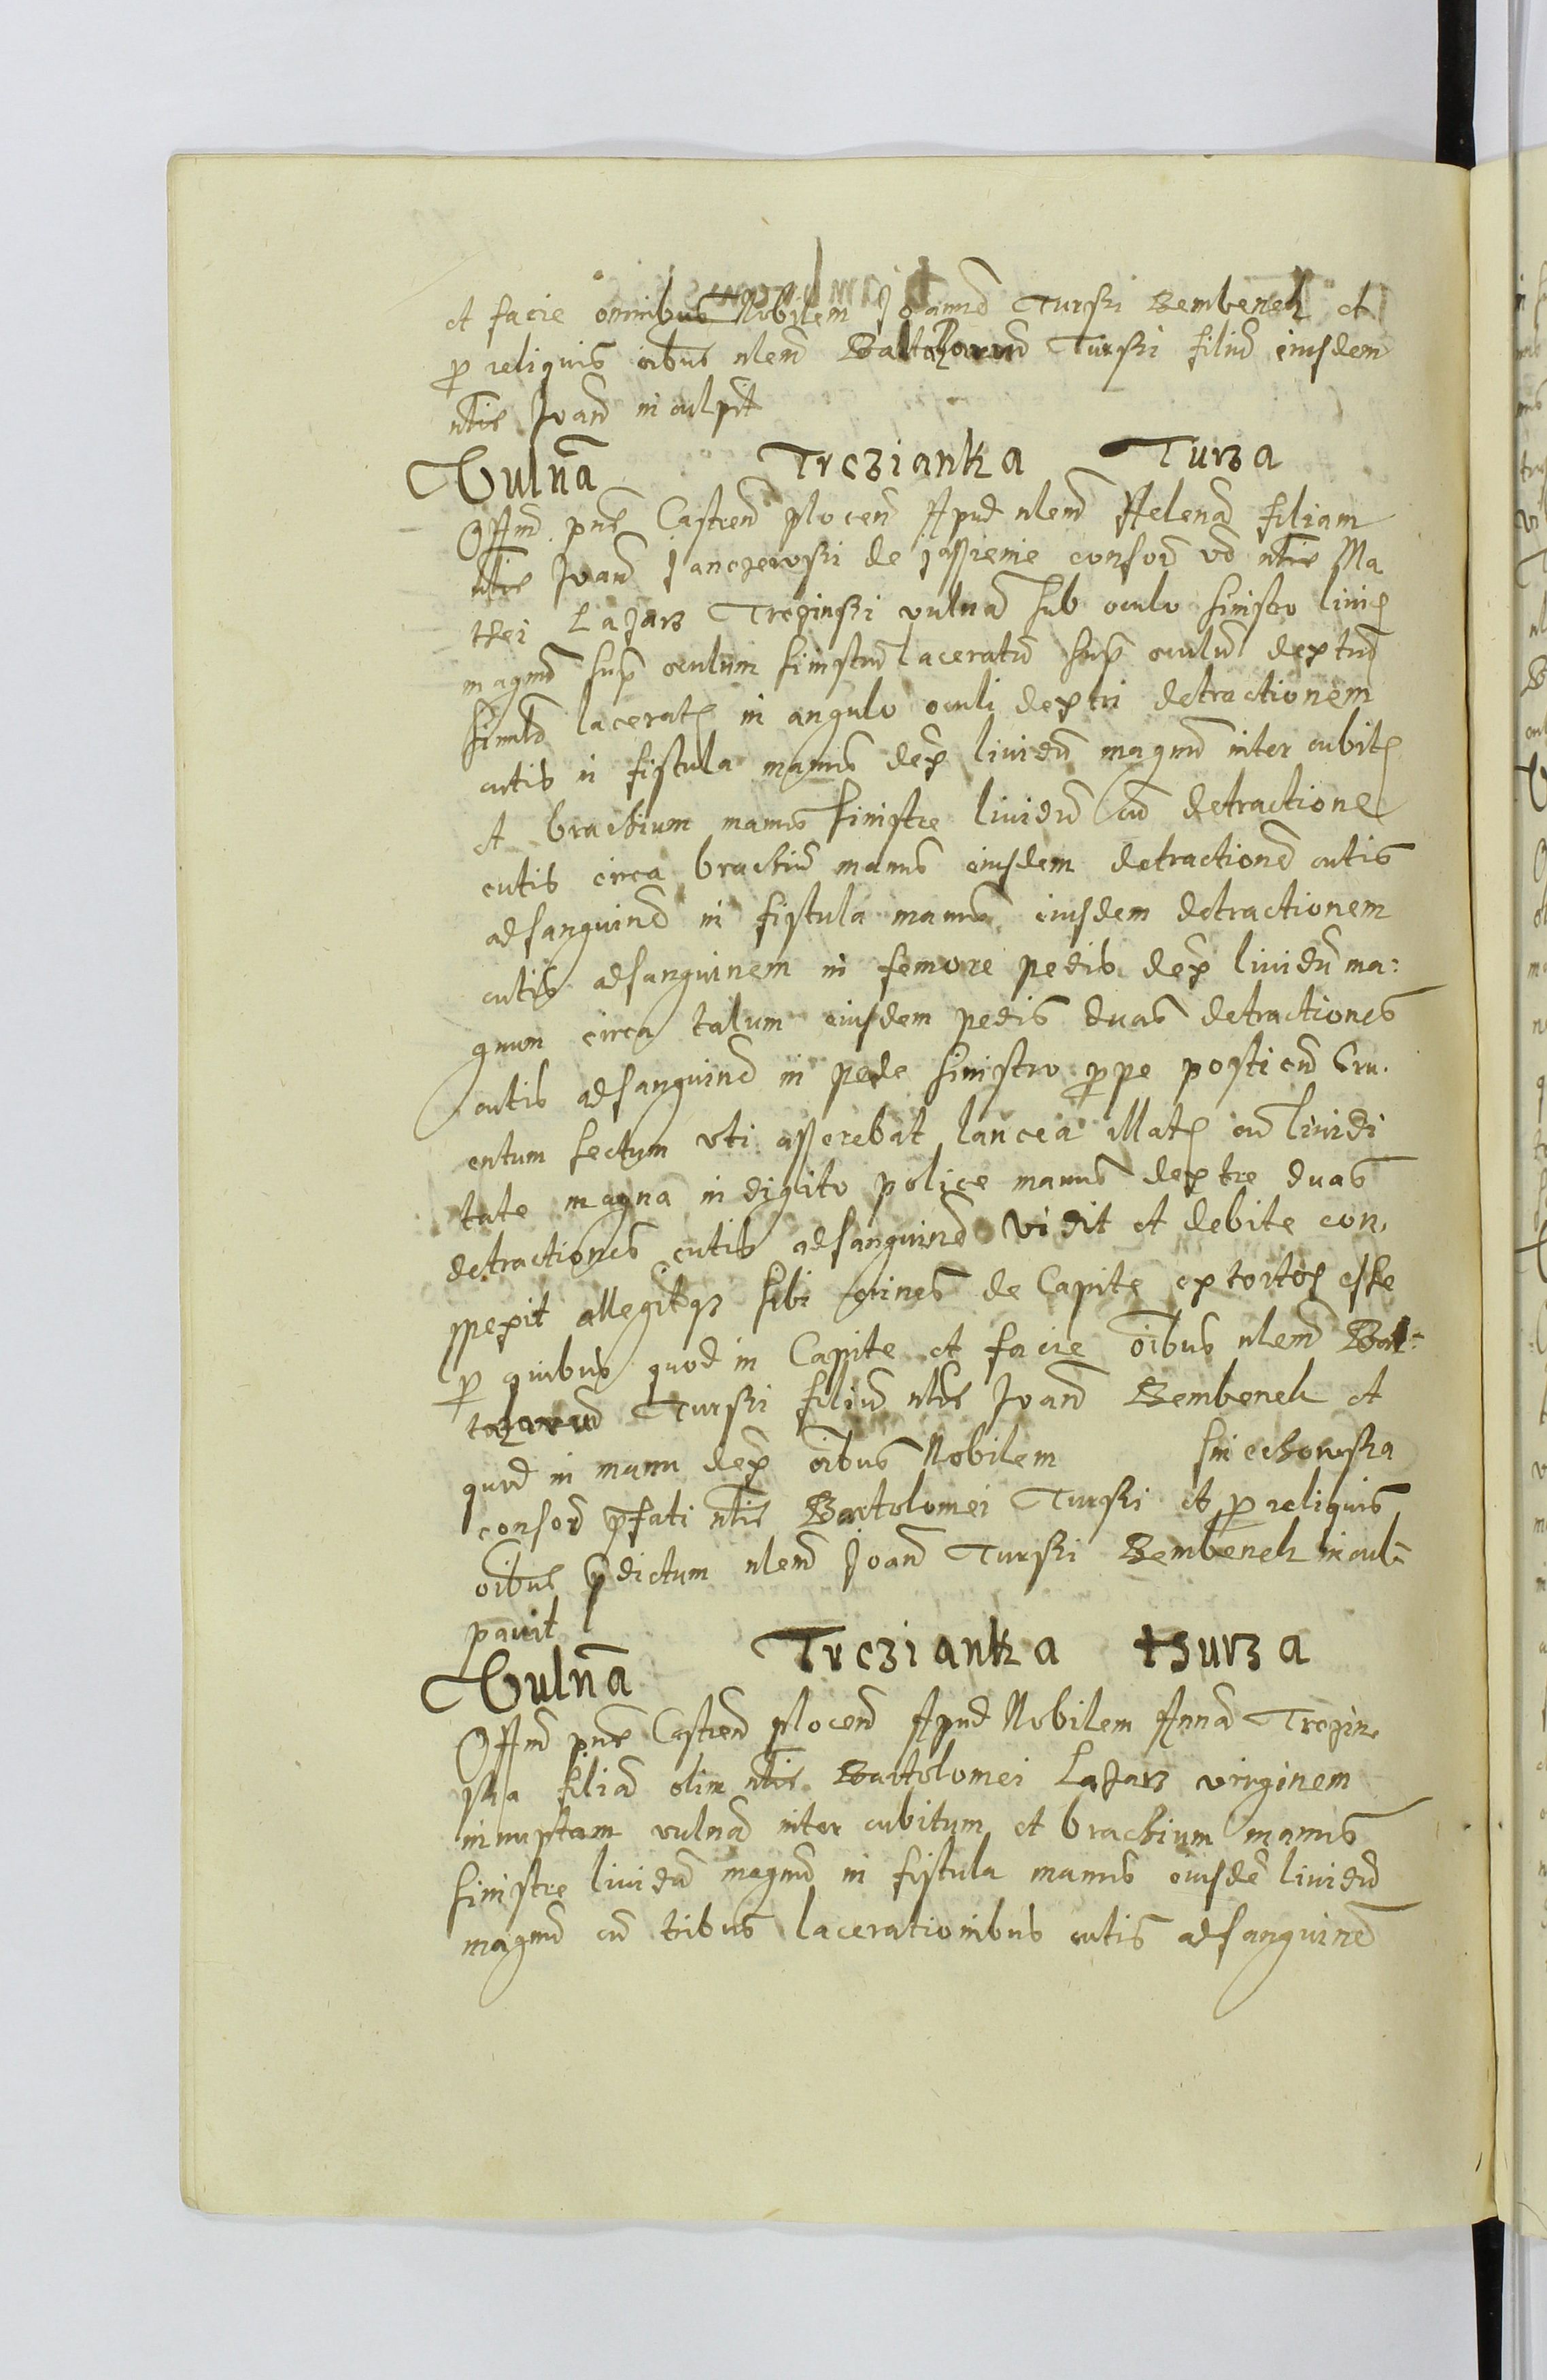 et facie omnibus Nobilem Joannē Turski Bembenek et
p reliquis oībus nlem Baltazarum Turski filiū eiusdem
nlis Joan̄ inculpat
Vulnā Trczianka Turza
Offīm pn̄s Castren̄ plocen̄ Apud nlem Helenā filiam
nlis Joan̄ Janczewski de jassienie consor̄ vō nlis Ma
thei Lazarz Trczinski vulnā sub oculo sinistro livid
magnū sup oculum sinistrū laceratū sup oculū dextrū
simile lacerat in angulo oculi dextri detractionem
cutis in fistula manus dex lividū magnū inter cubit
et brachium manus sinistre lividū cū detractione
cutis circa brachiū manus eiusdem detractionē cutis
ad sanguinē in fistula manus eiusdem detractionem
cutis ad sanguinem in femore pedis dex lividū ma:
gnum circa talum eiusdem pedis duas detractiones
cutis ad sanguinē in pede sinistro ppe posticū Cru.
entum sectum uti asserebat lancea illat cū lividi
tate magna in digito police manus dextre duas
detractiones cutis ad sanguinē vidit et debite con,
spexit allegitqz sibi crines de Capite extortos esse
p quibus quod in Capite et facie oībus nlem Bal=
tazarum Turski filiū nlis Joan̄ Bembenek et
quod in manu dex oībus Nobilem Sniechowska
consor̄ pfati nlis Bartolomei Turski et p reliquis
oībus pdictum nlem Joan̄ Turski Bembenek incul=
pavit
Vulnā Trczianka tsurza
Offīm pn̄s Castren̄ plocen̄ Apud Nobilem Annā Trczin
ska filiā olim nlis Bartolomei Lazarz virginem
innuptam vulnā inter cubitum et brachium manus
sinistre lividū magnū in fistula manus eiusdē lividū
magnū cū tribus lacerationibus cutis ad sanguinē